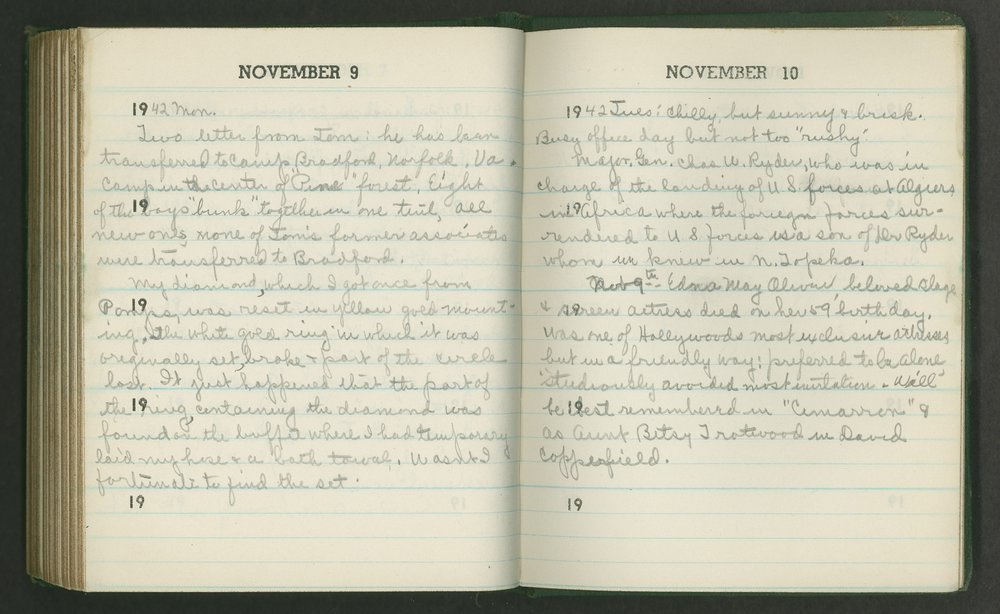 NOVEMBER 9
1942 Mon.
Two letter from Tom: he has been
transferred to Camp Bradford, Norfolk, Va.
Camp in the center of Pine "forest, Eight
of the boys "bunk" together in one tent, all
19
new ones, none of Tom's former associates
were transferred to Bradford.
My diamond, which I got once from
Pomps, was reset in yellow gold mount-
19
ing. The white gold ring in which it was
originally set, broke & part of the circle
lost. It just happened that the part of
the ring, containing the diamond was
19
found on the buffet where I had temporary
laid my hose & a bath towel. Wasn't I
fortunate to find the set.
19
NOVEMBER 10
1942 Tues: Chilly, but sunny & brisk.
Busy office day but not too "rushy"
Major, Gen. Chas W. Ryder, who was in
charge of the landing of U S forces at Algiers
in Africa where the foriegn forces sur-
19
rendered to U S forces is a son of Dr Ryder
whom we knew in N. Topeka.
Nov 9th - Edna May Oliver beloved stage
& screen actress died on her 59' birthday.
19
Was one of Hollywoods most exclusive actresses
but in a friendly way: preferred to be alone
"studiously avoided most invitation - We'll"
be best rememberrd in "Cimarron" &
19
as Aunt Betsy Trotwood in David
Copperfield.
19